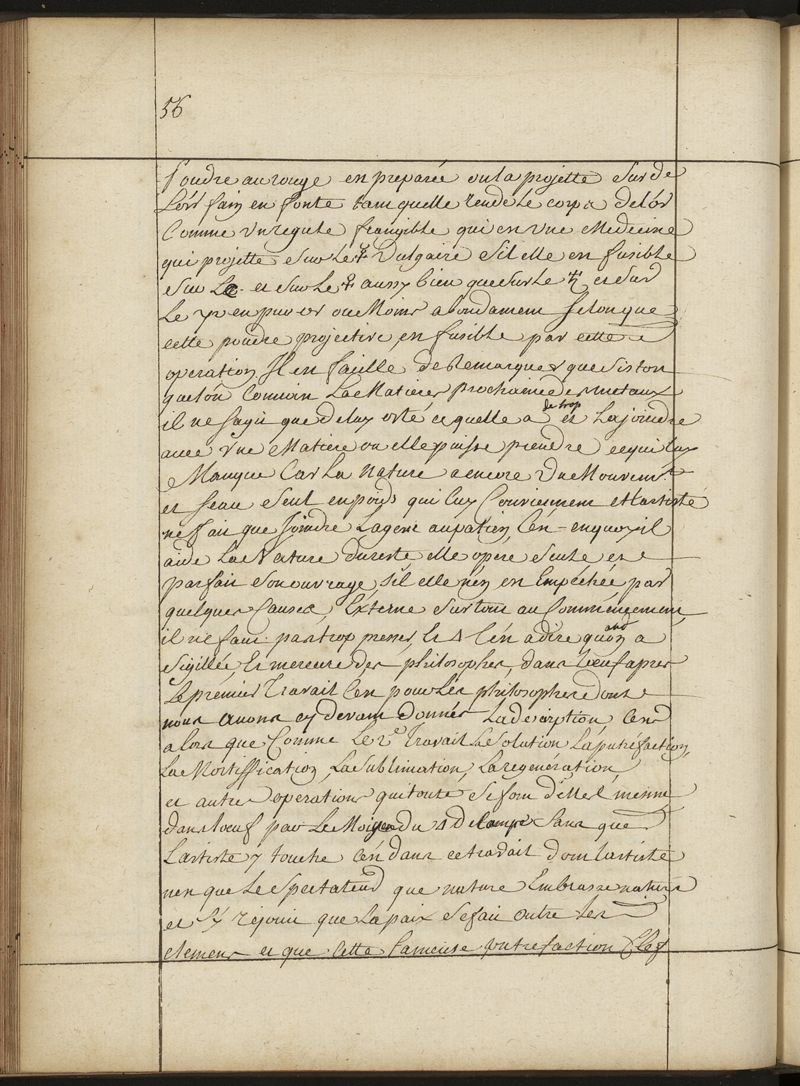 56
foudre au rouge en preparée on la projette sur de
Lor fin en fonte tam quelle rende le corps delor
Comme un regule frangible qui en une Medecine
qui projette sur le ☿ Vulgaire sil elle en fusible
sur La et sur le ♀ aussy bien que sur le ♄ et sur
Le en pur or ou Moins abondament selon que
cette poudre projective en fusible par cette
operation Il en facille de Remarquer que si ton
que lon Connoin La Matiere prochaine des metaux
il ne sagit que de luy oté ce quelle a de trop et La joindre
avec une Matiere ou elle puisse prendre ce qui luy
Manque Car La Nature a encore Un Mouvemt
et seau seul en poids qui luy Conviennent et L'artiste
ne fait que joindre Lagent au patien Cen en quoy il
aide La Nature du reste elle opere seule et
parfait son ouvrage, sil elle n'en en Empechée par
quelques Causes, Externe surtout au Commencement,
il ne faut pas trop presser le △ Cen a dire quon a
sigillée le mercure des philosophes, dans l'œuf apres
Le premier Travail Cen pour les philosophes dont
nous avons cy devant donnés La description Cen
alors que Comme le 2e Travail La solution La putrefaction,
La Mortiffication, La sublimation, La regenération
et autres operations qui toute se font d'elles meme
dans l'œuf par Le Moiyen du △ de Lampe Sans que
L'artiste y touche Cen dans ce travail dont l'artiste
nen que Le spectateur que nature Embrasse nature
et s'y rejouit que La paix se fait entre Les
elemens et que Cette fameuse putrefaction Clef